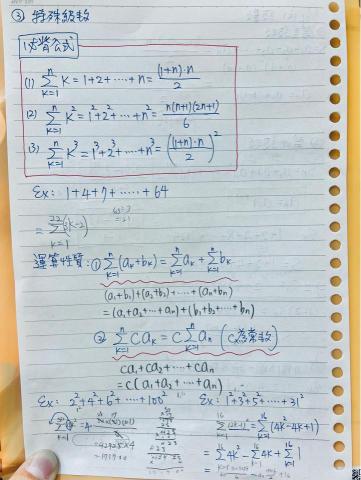 ③ 特殊級數
必背公式
(1) \sum_{k=1}^{n} k = 1+2+……+n = \frac{(1+n)·n}{2}
(2) \sum_{k=1}^{n} k^2 = 1^2+2^2+……+n^2 = \frac{n(n+1)(2n+1)}{6}
(3) \sum_{k=1}^{n} k^3 = 1^3+2^3+……+n^3 = \left(\frac{(1+n)·n}{2}\right)^2
Ex: 1+4+7+……+64
= \sum_{k=1}^{22} (3k-2)
運算性質: ① \sum_{k=1}^{n} (a_k+b_k) = \sum_{k=1}^{n} a_k + \sum_{k=1}^{n} b_k
(a_1+b_1)+(a_2+b_2)+……+(a_n+b_n)
= (a_1+a_2+…+a_n)+(b_1+b_2+…+b_n)
② \sum_{k=1}^{n} c a_k = c \sum_{k=1}^{n} a_n (c為常數)
ca_1+ca_2+……+ca_n
= c(a_1+a_2+…+a_n)
Ex: 2^2+4^2+6^2+……+100^2
Ex: 1^2+3^2+5^2+……+31^2
\sum_{k=1}^{16} (2k-1)^2 = \sum_{k=1}^{16} (4k^2-4k+1)
= \sum_{k=1}^{16} 4k^2 - \sum_{k=1}^{16} 4k + \sum_{k=1}^{16} 1
= 42925×4
= 171700